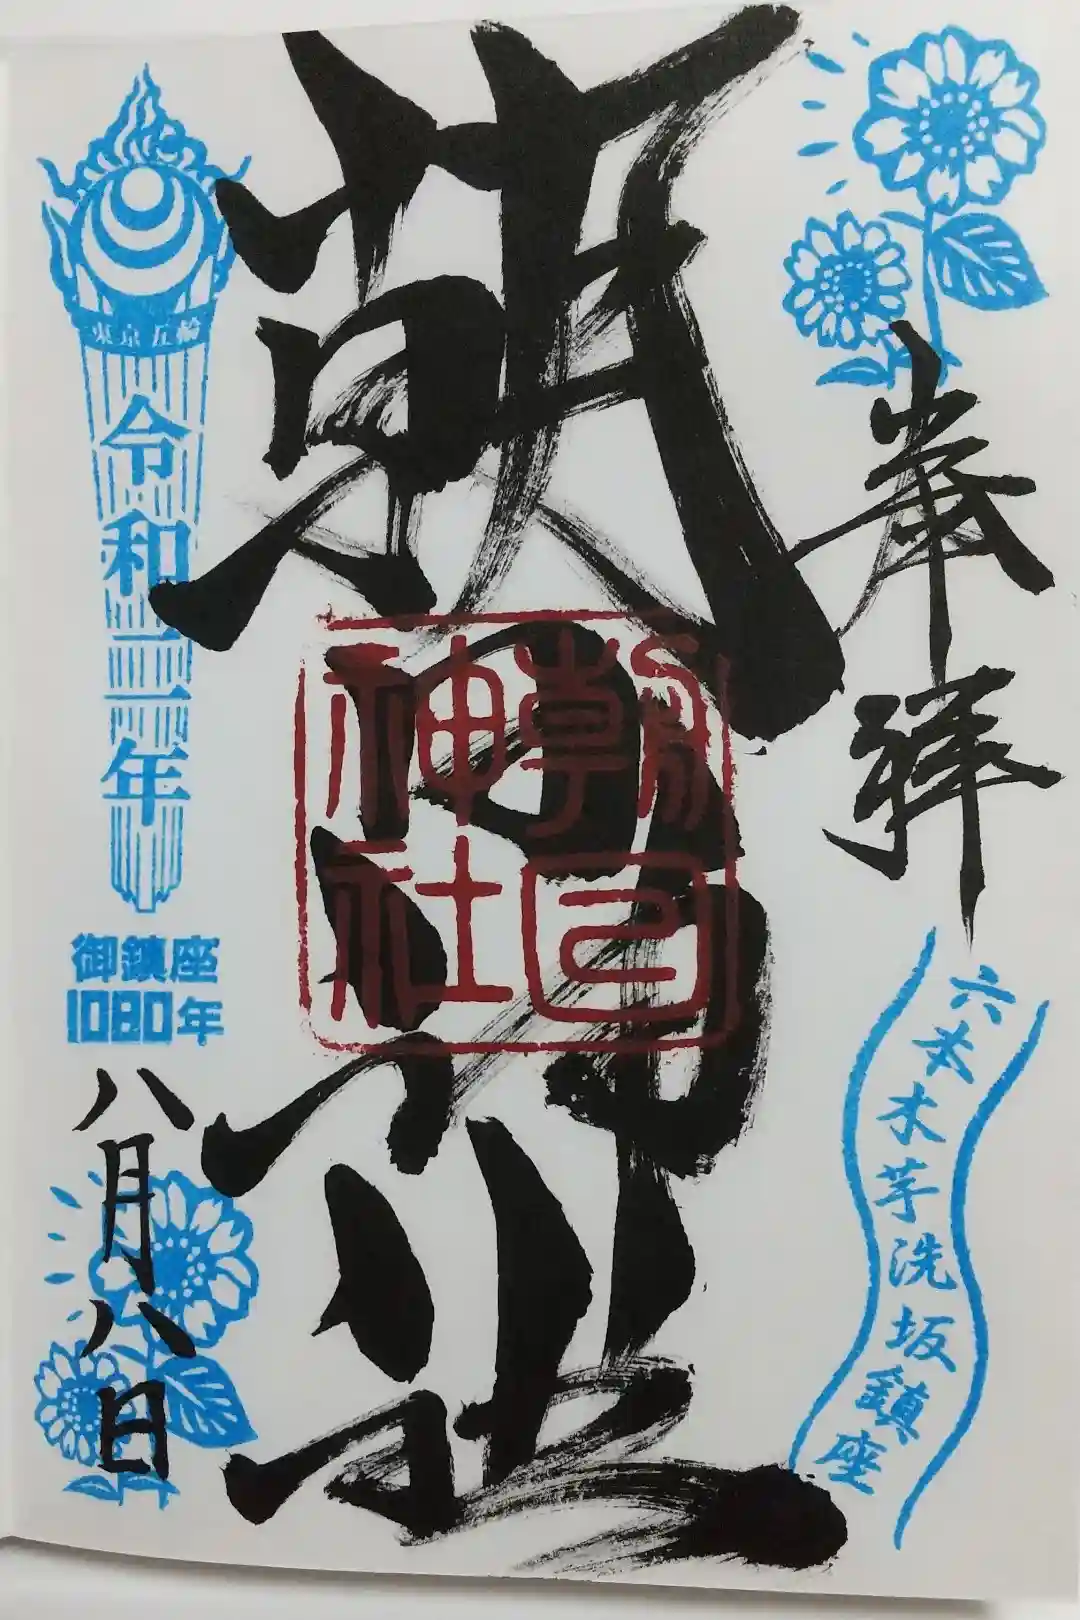 奉拝
六本木芋洗坂鎮座
朝日神社
朝日神社
東京五輪
令和二年
御鎮座
1080年
八月八日